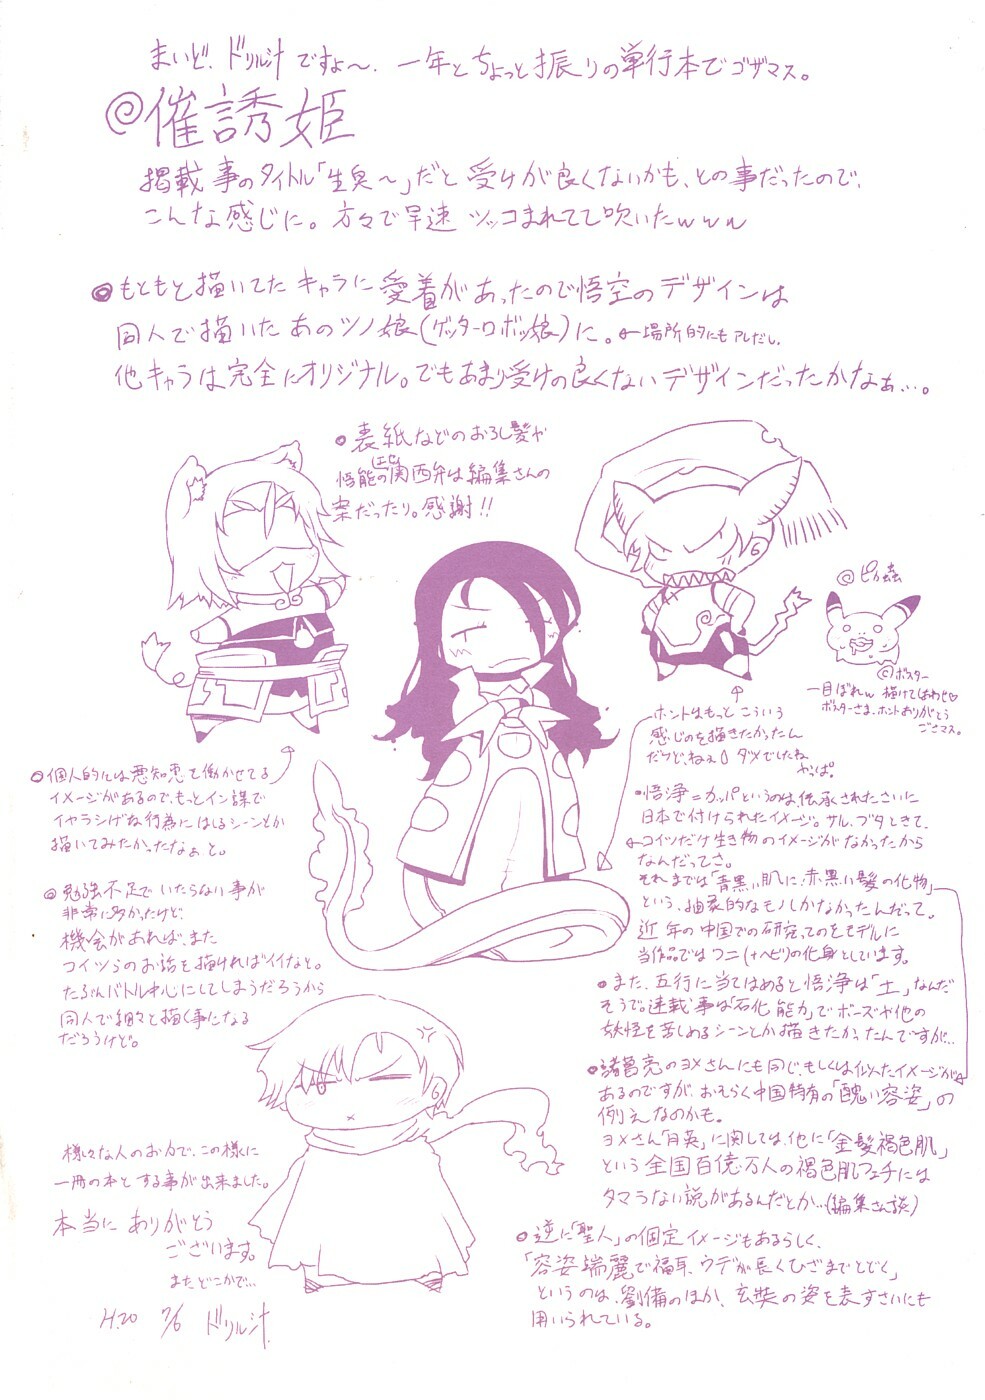 まいど、ドリル汁ですよ～、一年とちょっと振りの単行本でゴザマス。
@催誘姫
掲載事のタイトル「生臭～」だと受けが良くないかも、との事だったので、
こんな感じに。方々で早速ツッコまれてて吹いたwww
◎もともと描いてたキャラに愛着があったので悟空のデザインは
同人で描いたあのツノ娘(ゲッターロボッ娘)に。←場所的にもアレだし、
他キャラは完全にオリジナル。でもあまり受けの良くないデザインだったかなぁ…。
○表紙などのおろし髪や
悟能の(エセ)関西弁は編集さんの
案だったり。感謝!!
@ピカ蟲
©ポスター
一目ぼれw 描けてしあわせ♡
ポスターさま、ホントありがとう
ごさマス。
ホントはもっとこういう
感じのを描きたかったん
だけど、ねぇ()ダメでしたね
やっぱ。
○個人的には悪知恵を働かせてる
イメージがあるので、もっとイン謀で
イヤラシげな行為にはしるシーンとか
描いてみたかったなぁと。
◎勉強不足でいたらない事が
非常に多かったけど、
機会があれば、また
コイツらのお話を描ければイイなと。
たぶんバトル中心にしてしまうだろうから
同人で細々と描く事になる
だろうけど。
•悟浄=カッパというのは、伝承されたさいに
日本で付けられたイメージ。サル、ブタときて、
←コイツだけ生き物のイメージがなかったから
なんだってさ。
それまでは「青黒い肌に、赤黒い髪の化物」
という、抽象的なモノしかなかったんだって。
近年の中国での研究、でのをモデルに
当作品ではワニ(+ヘビ)の化身としています。
•また、五行に当てはめると悟浄は「土」なんだ
そうで。連載事は「石化能力」でボーズや他の
妖怪を苦しめるシーンとか描きたかったんですが…
○諸葛亮のヨメさんにも同じ、もしくは似たイメージが
あるのですが、おそらく中国特有の「醜い容姿」の
例えなのかも。
ヨメさん「月英」に関しては、他に「金髪褐色肌」
という全国百億万人の褐色肌フェチには
タマらない説があるんだとか…(編集さん談)
○逆に「聖人」の固定イメージもあるらしく、
「容姿端麗で福耳、ウデが長くひざまでとどく」
というのは、劉備のほか、玄奘の姿を表すさいにも
用いられている。
様々な人のお力で、この様に
一冊の本とする事が出来ました。
本当にありがとう
ございます。
またどこかで…
H.20 7/6 ドリル汁